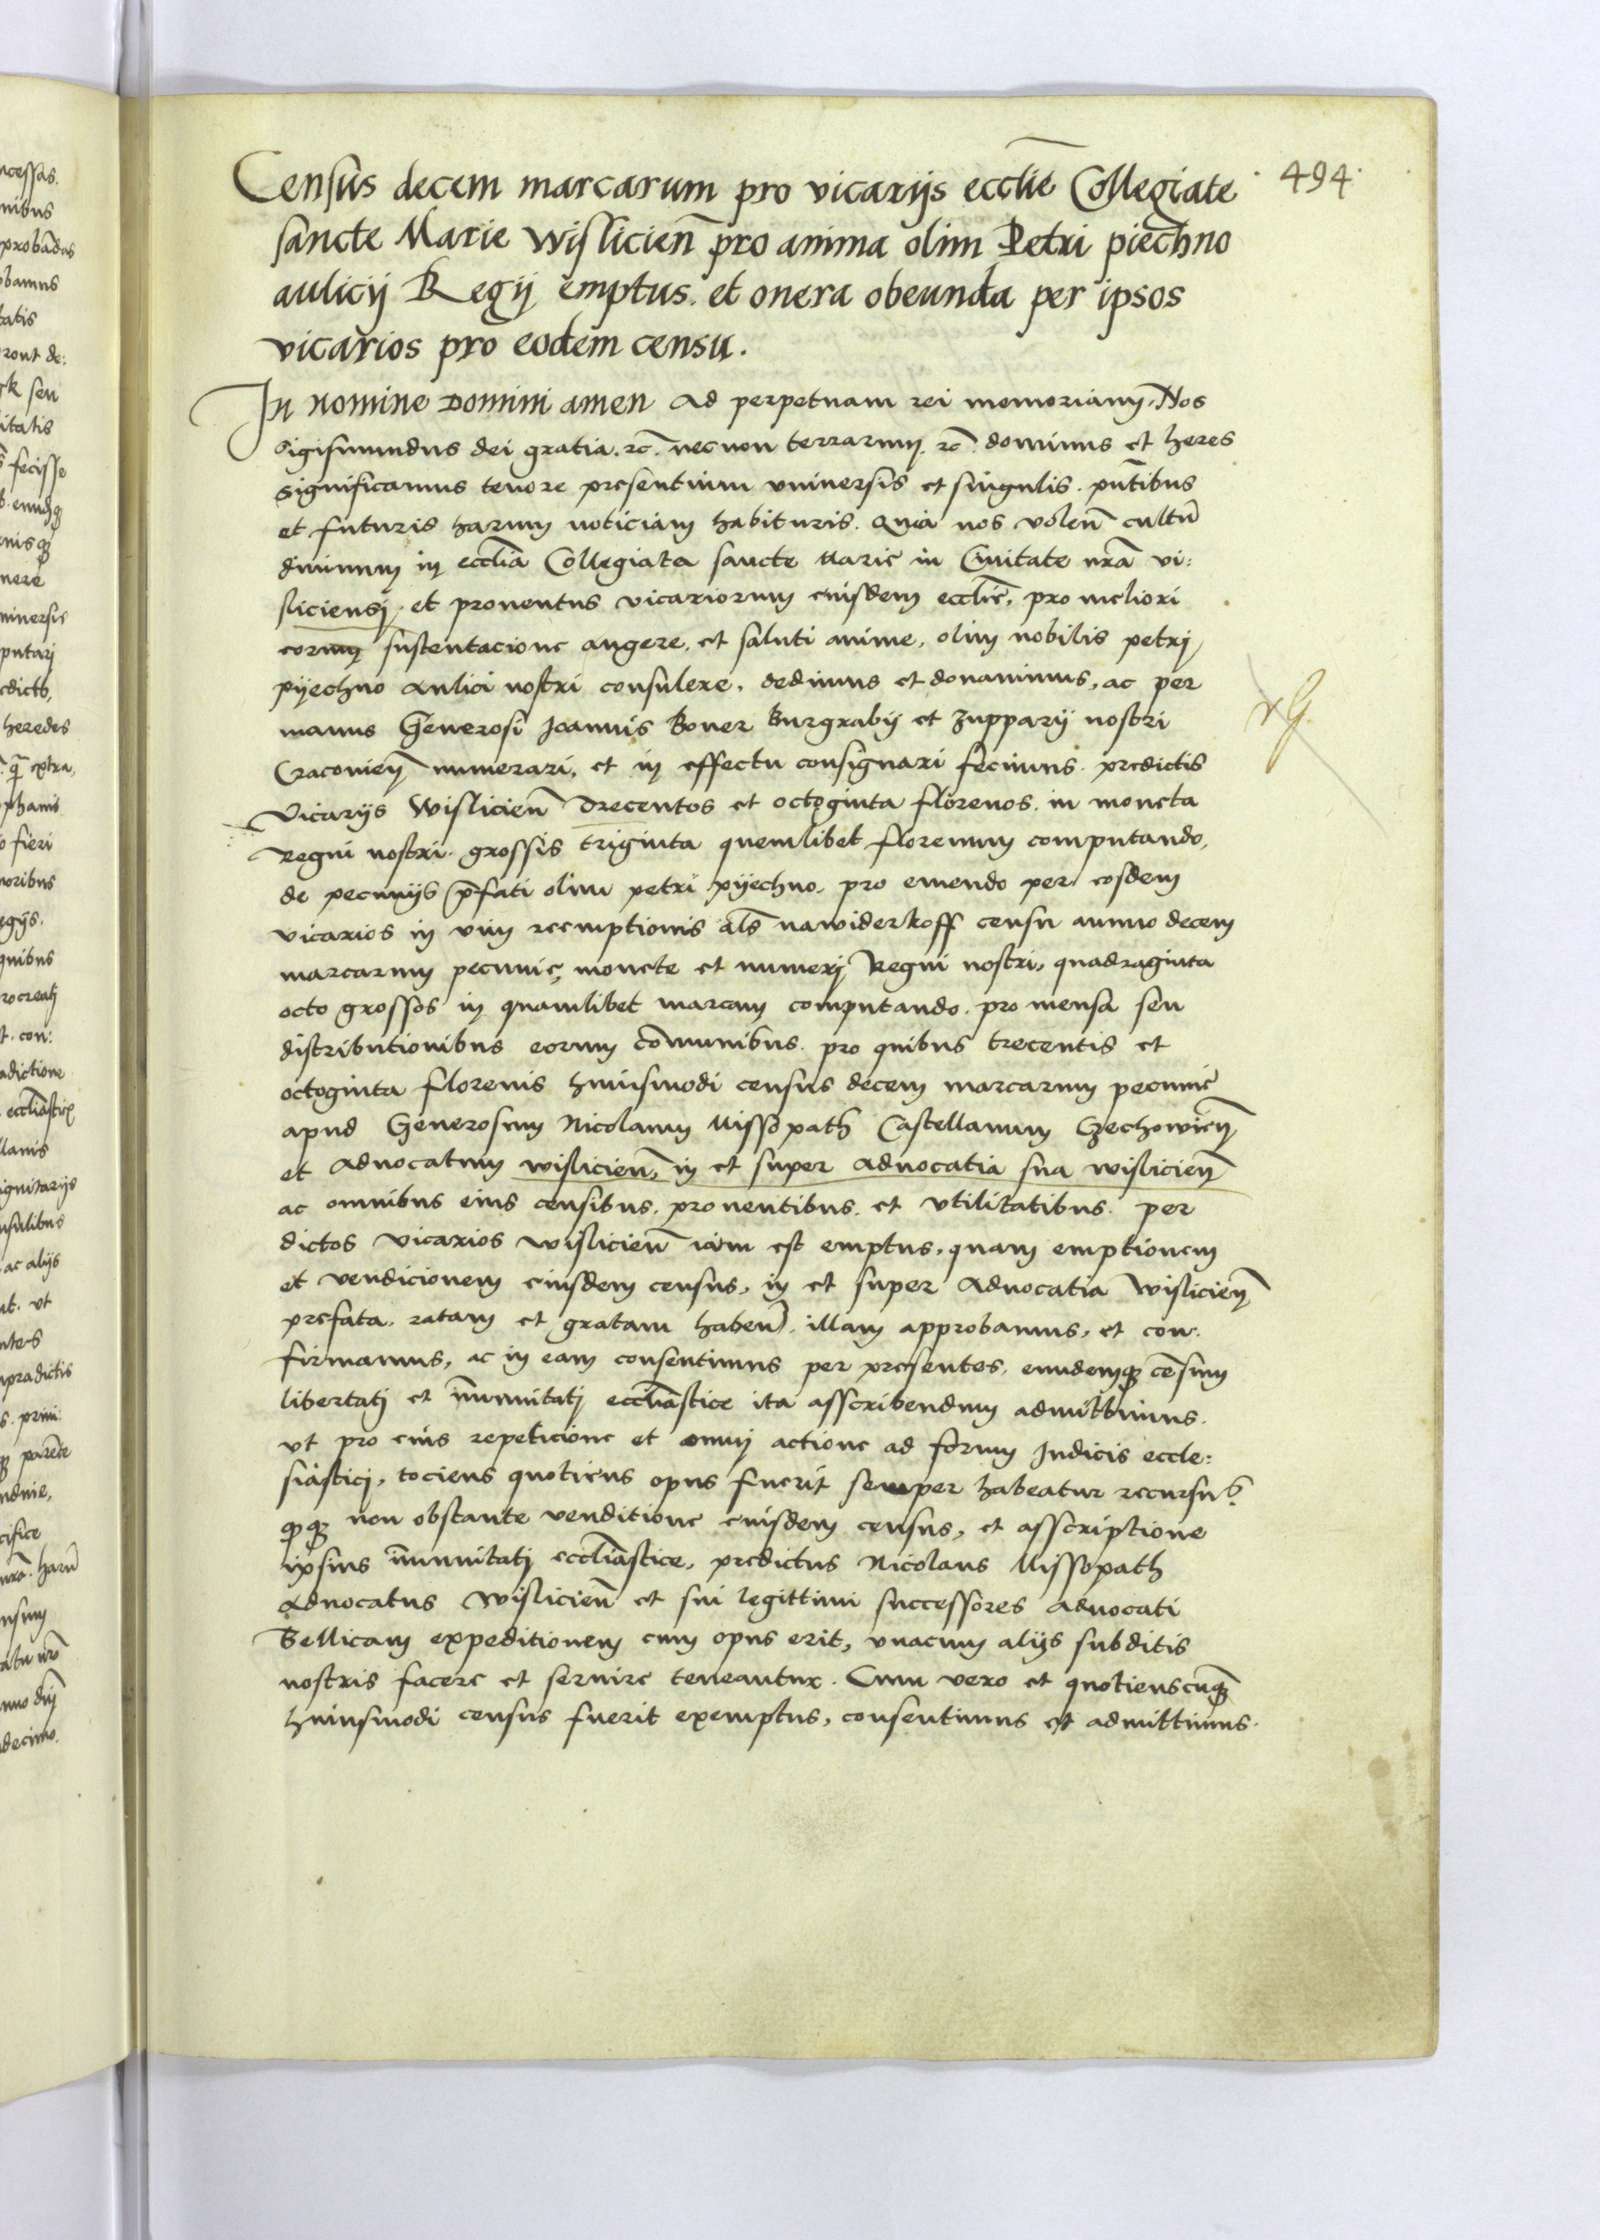 Censùs decem marcarum pro vicarijs eccl̄ie Collegiate
494
sancte Marie Wislicien̄ pro anima olim Petri piechno
aulicij Regij emptus. et onera obeunda per ipsos
vicarios pro eodem censu.
In nomine Domini amen Ad perpetuam rei memoriam, Nos
Sigismundus dei gratia. rc̄. necnon terrarum. rc̄. dominus et heres
significamus tenore presentium vniuersis et singulis. pn̄tibus
et futuris harum noticiam habituris. Quia nos volen̄ cultū
diuinum in eccl̄ia Collegiata sancte Marie in Ciuitate nr̄a vi:
sliciensi, et prouentus vicariorum eiusdem eccl̄ie, pro meliori
eorum sustentacione augere, et saluti anime, olim nobilis petri
pyechno Aulici nostri consulere, dedimus et donauimus, ac per
manus Generosi Joannis Boner Burgrabij et Zupparij nostri
Cracovien̄ numerari, et in effectu consignari fecimus. predictis
Vicarijs Wislicien̄ Trecentos et octoginta florenos. in moneta
Regni nostri. grossis triginta quemlibet florenum computando,
de pecunijs p̄fati olim petri pyechno. pro emendo per eosdem
vicarios in vim reemptionis al̄s nawiderkoff censu annuo decem
marcarum pecunie, monete et numeri Regni nostri, quadraginta
octo grossos in quamlibet marcam computando. pro mensa seu
distributionibus eorum cōmunibus. pro quibus trecentis et
octoginta florenis huiusmodi census decem marcarum pecunie
apud Generosum Nicolaum Missopath Castellanum Czechowien̄
et Aduocatum wislicien̄, in et super Aduocatia sua wislicien̄
ac omnibus eius censibus. prouentibus. et vtilitatibus. per
dictos vicarios wislicien̄ iam est emptus, quam emptionem
et vendicionem eiusdem census, in et super Aduocatia Wislicien̄
prefata. ratam et gratam haben̄. illam approbamus, et con:
firmamus, ac in eam consentimus per presentes. eundemq̧ cēsum
libertati et īmunitati eccl̄iastice ita asscribendum admittimus.
vt pro eius repeticione et omni actione ad forum Judicis eccle:
siastici, tociens quotiens opus fuerit semper habeatur recursus.
non obstante venditione eiusdem census, et asscriptione
ipsius īmunitati eccl̄iastice, predictus Nicolaus Missopath
Aduocatus Wislicien̄ et sui legittimi successores Aduocati
Bellicam expeditionem cum opus erit, vnacum alijs subditis
nostris facere et seruire teneantur. Cum vero et quotienscūq̧
huiusmodi census fuerit exemptus, consentimus et admittimus.